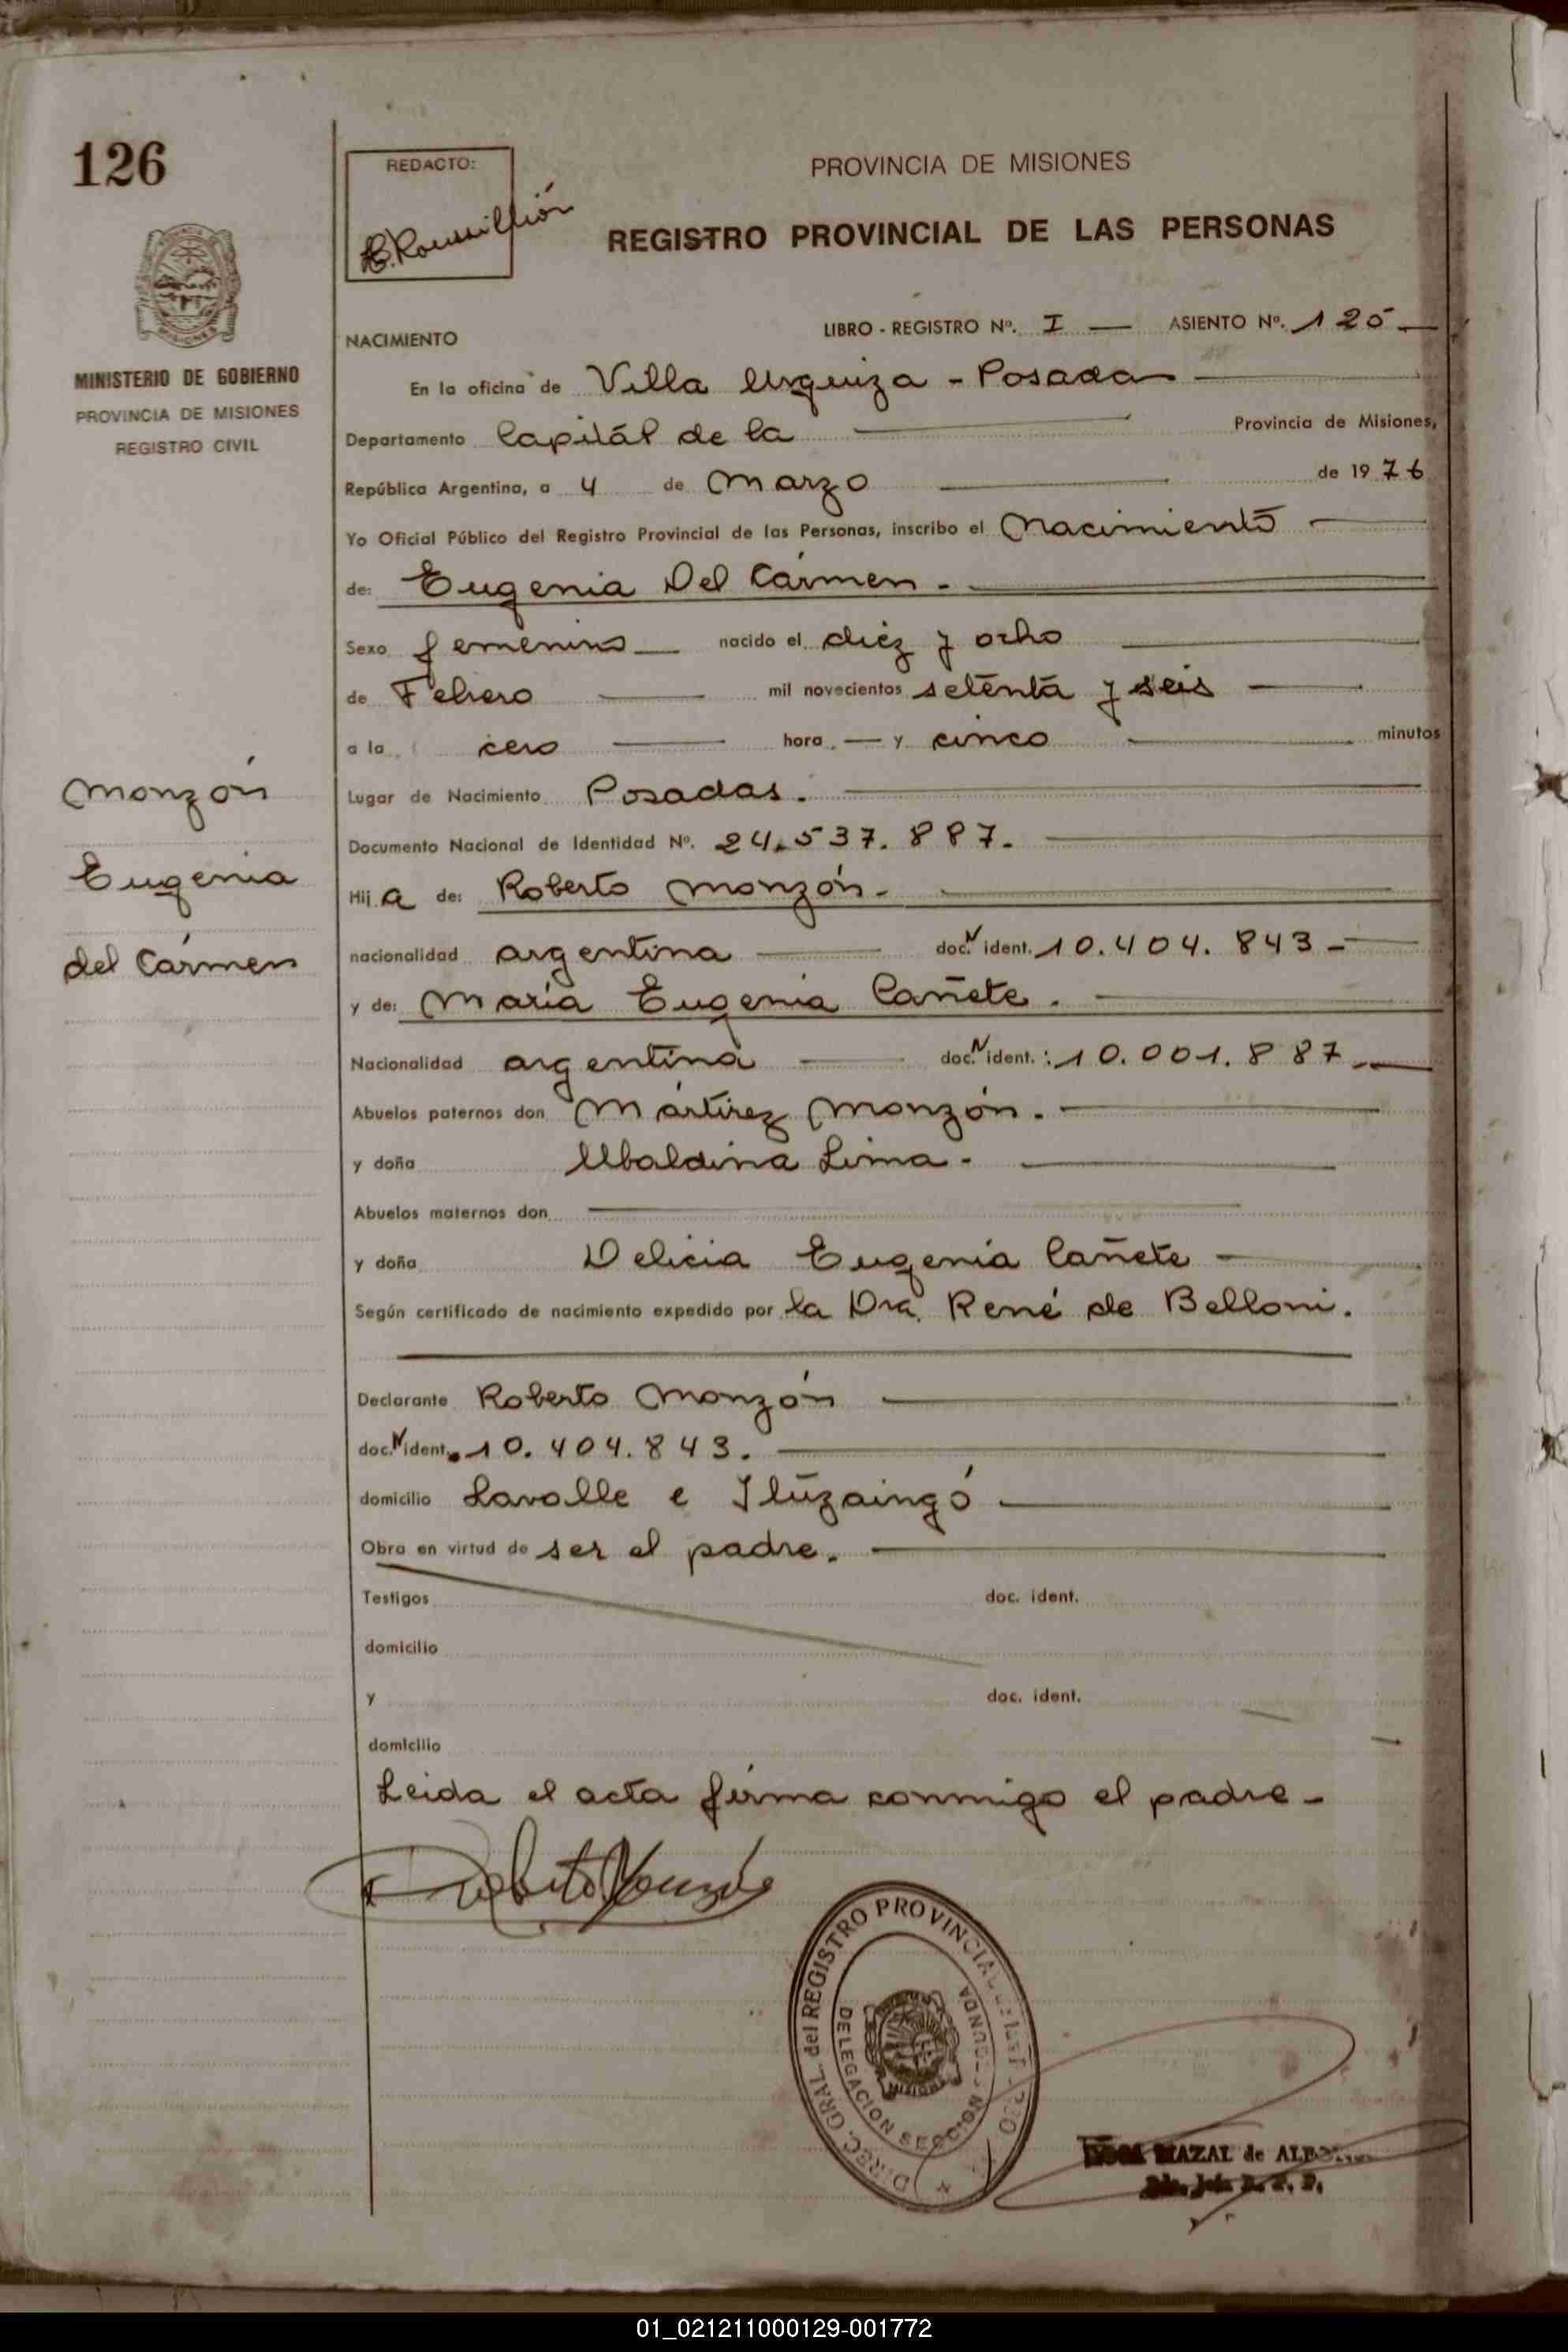 126
REDACTO:
PROVINCIA DE MISIONES
REGISTRO PROVINCIAL DE LAS PERSONAS
MINISTERIO DE GOBIERNO
PROVINCIA DE MISIONES
REGISTRO CIVIL
NACIMIENTO
LIBRO - REGISTRO Nº. I — ASIENTO Nº. 125 —
En la oficina de Villa Urquiza - Posadas
Departamento Capitál de la Provincia de Misiones,
República Argentina, a 4 de Marzo de 1976
Yo Oficial Público del Registro Provincial de las Personas, inscribo el Nacimiento
de: Eugenia Del Cármen.
Sexo femenino nacido el diéz y ocho
de Febrero mil novecientos setenta y seis
a la cero hora — y cinco minutos
Lugar de Nacimiento Posadas.
Documento Nacional de Identidad Nº. 24.537.887.
Hij a de: Roberto Monzón.
nacionalidad argentina doc. N ident. 10.404.843
y de: María Eugenia Cañete.
Nacionalidad argentina doc. N ident.: 10.001.887
Abuelos paternos don Mártirez Monzón.
y doña Ubaldina Lima.
Abuelos maternos don
y doña Delicia Eugenia Cañete
Según certificado de nacimiento expedido por la Dra. René de Belloni.
Declarante Roberto Monzón
doc. N ident. 10.404.843.
domicilio Lavalle e Ituzaingó
Obra en virtud de ser el padre.
Testigos doc. ident.
domicilio
y doc. ident.
domicilio
Leida el acta firma conmigo el padre
Monzón
Eugenia
del Cármen
Roberto Monzón
DIREC. GRAL. del REGISTRO PROVINCIAL
DELEGACION SECCION SEGUNDA
MISIONES
MAZAL de
01_021211000129-001772